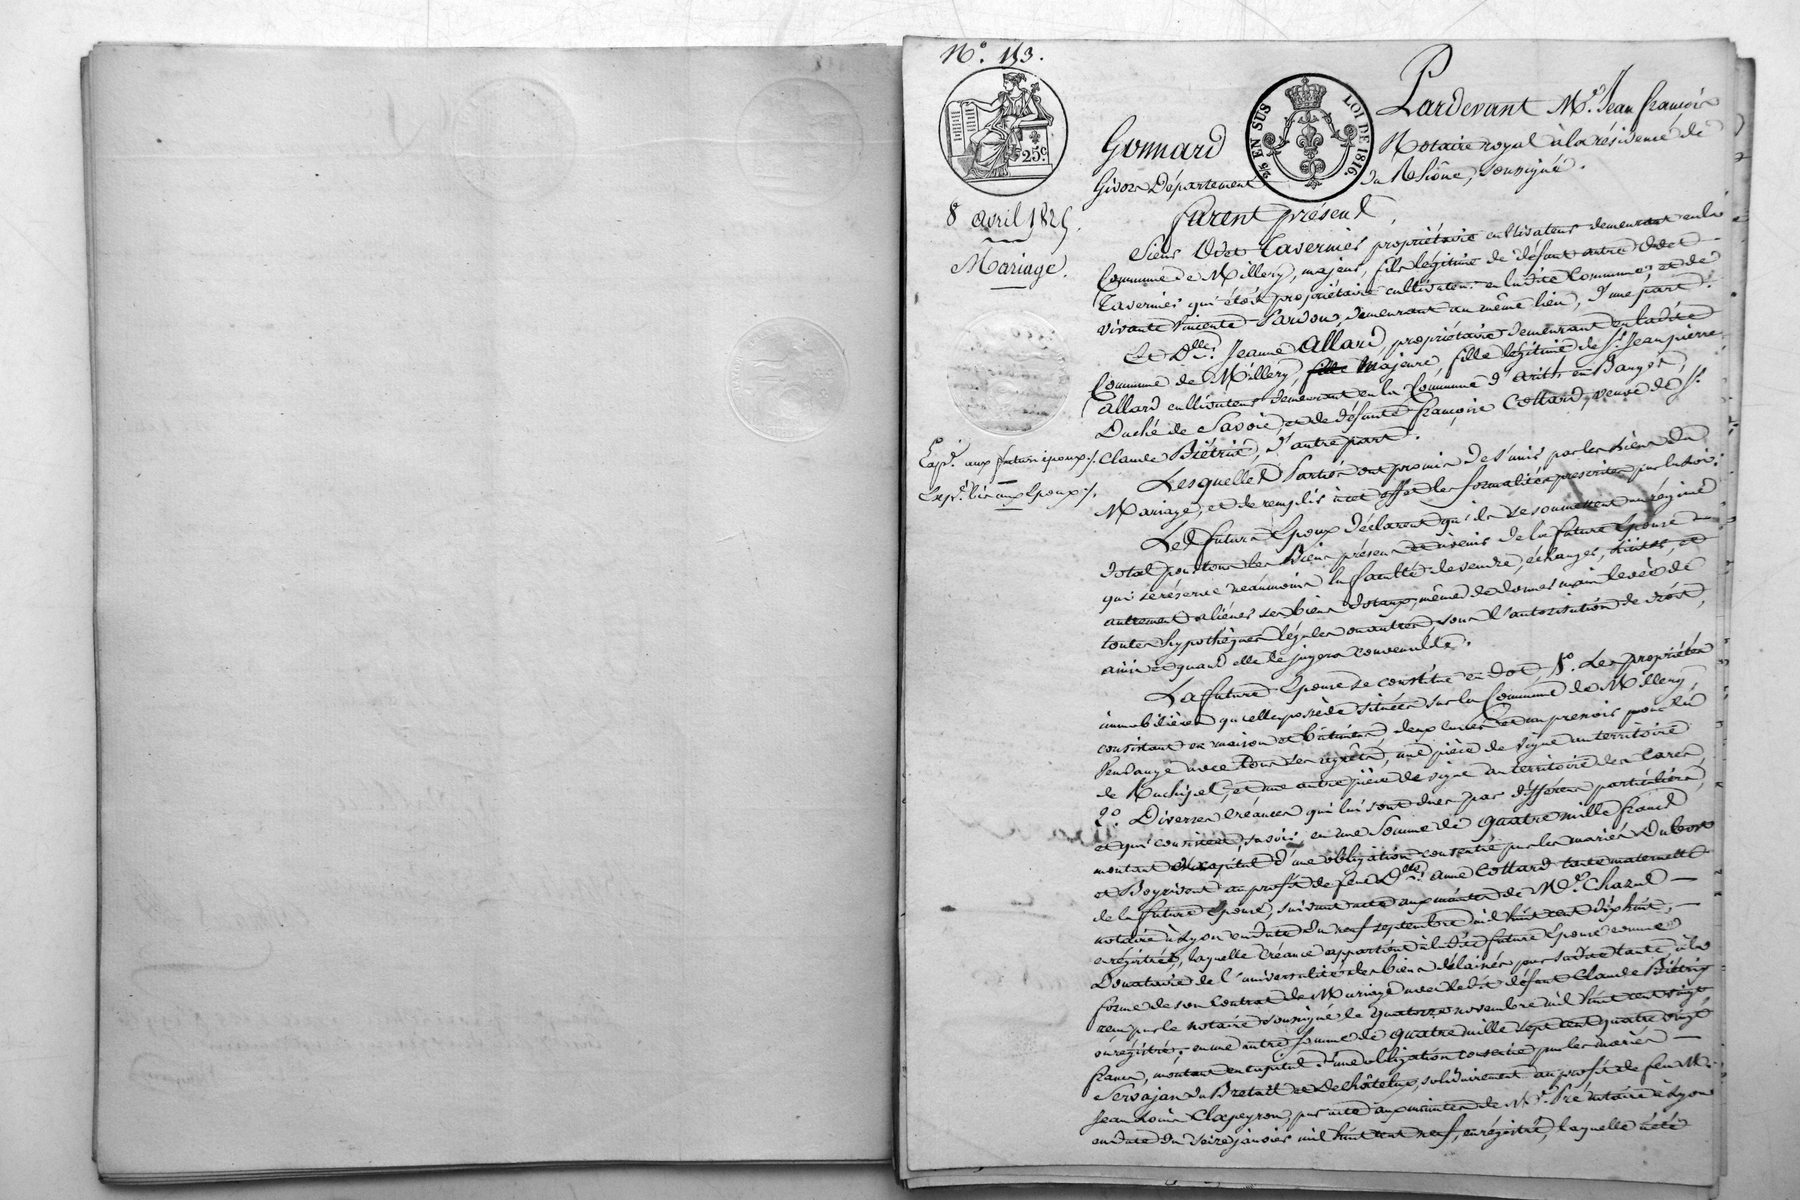 N.° 153.
25c
3/6 EN SUS
LOI DE 1816.
8 avril 1825.
Mariage.
Exp.on aux futurs époux ./.
aux Epoux ./.
Pardevant M.e Jean françois
Gonnard Notaire royal à la résidence de
Givors Département du Rhône, soussigné.
furent présent,
Sieur Odet Tavernier propriétaire cultivateur demeurant en la
Commune de Millery, majeur, fils légitime de défunt autre Odet
Tavernier qui étoit propriétaire cultivateur en ladite Commune, et de
vivante Vincente Pardon, demeurant au même lieu, d'une part.
Et D.lle Jeanne Allard, propriétaire demeurant en ladite
Commune de Millery, fille Majeure, fille légitime de S.r Jean pierre
Allard cultivateur demeurant en la Commune d'Arith en Bauges,
Duché de Savoie, et de défunte françoise Collard, veuve de S.r
Claude Biétrix, d'autre part.
Lesquelles Parties ont promis de s'unir par les liens du
Mariage, et de remplir à cet effet les formalités prescrites par la loi.
Les futurs Epoux déclarent qu'ils se soumettent au régime
dotal pour tous les Biens présens et à venir de la future Epouse
qui se réserve néanmoins la faculté de vendre, échanger, et
autrement aliéner ses biens dotaux, même de donner main levée de
toutes hypothèques légales ou autres, sous l'autorisation de droit,
ainsi et quand elle le jugera convenable.
La future Epouse se constitue en dot, 1.° Les propriétés
immobilières qu'elle possède situées sur la Commune de Millery,
consistant en maison et bâtimens, deux cuves et un pressoir pour la
Vendange avec tous ses agrêts, une pièce de vigne au territoire
de et une autre pièce de vigne au territoire des
2.° Diverses Créances qui lui sont dues par différens particuliers,
et qui consistent, savoir, en une Somme de quatre mille francs
montant en capital d'une obligation consentie par les mariés Dubost
et au profit de feue D.lle anne Collard tante maternelle
de la future Epouse, suivant acte aux minutes de M.e Chazal
notaire à Lyon en date du neuf septembre mil huit cent dix huit,
enregistré, laquelle Créance appartient à ladite future Epouse comme
Donataire de l'universalité des biens délaissés par sadite tante, à la
forme de son Contrat de Mariage avec ledit défunt Claude Biétrix
reçu par le notaire soussigné le quatorze novembre mil huit cent vingt
enregistré; en une autre somme de quatre mille sept cent quatre vingt
francs, montant en capital d'une obligation consentie par les mariés
Servajan du et Dechâtelus, solidairement au profit de feu M.r
Jean Louis Clapeyron, par acte aux minutes de M.e Pré notaire à Lyon
en date du seize janvier mil huit cent neuf, enregistré, laquelle a été